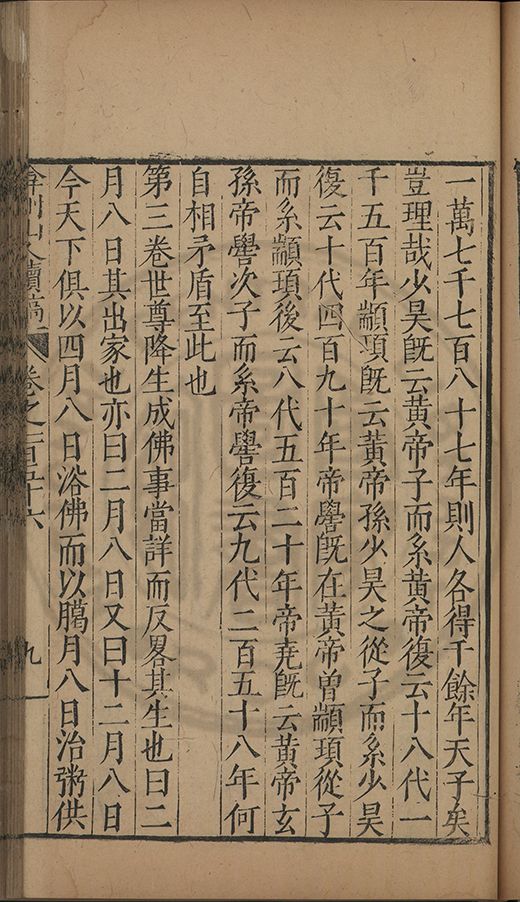 一萬七千七百八十七年則人各得千餘年天子矣
豈理哉少昊旣云黃帝子而系黃帝復云十八代一
千五百年顓頊旣云黃帝孫少昊之從子而系少昊
復云十代四百九十年帝嚳旣在黃帝曾顓頊從子
而系顓頊後云八代五百二十年帝堯旣云黃帝玄
孫帝嚳次子而系帝嚳復云九代二百五十八年何
自相矛盾至此也
第三卷世尊降生成佛事當詳而反畧其生也曰二
月八日其出家也亦曰二月八日又曰十二月八日
今天下俱以四月八日浴佛而以臈月八日治粥供
弇州山人續稿 卷之一百五十六 九